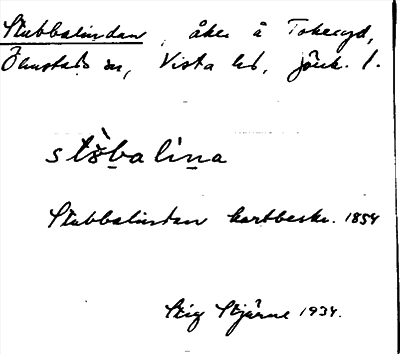 Stubbalindan, åker å Tokeryd,
Ölmstads sn, Vista hd, Jönk. l.
stɵ̀b̲alin̲a
Stubbalindan kartbeskr. 1854
Stig Stjärne 1934.